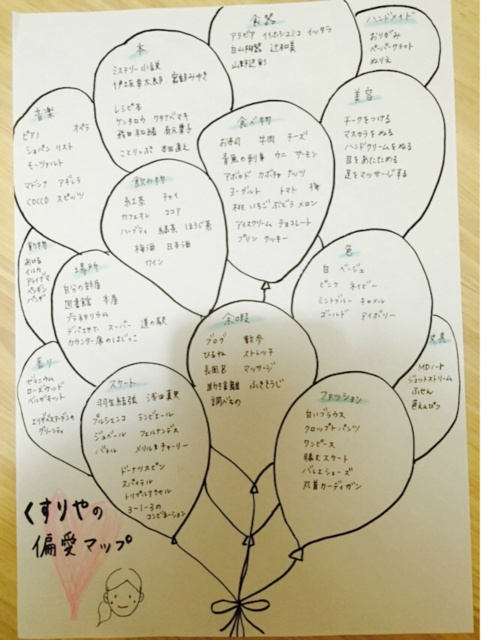 食器
アラビア イッタラ
白山陶器 辻和美
山野辺彩
ハンドメイド
おりがみ
ペーパークラフト
ぬりえ
本
ミステリー小説
伊坂幸太郎 宮部みゆき
レシピ本
ケンタロウ ワタナベマキ
飛田和緒
ことりっぷ
音楽
ピアノ オペラ
ショパン リスト
モーツァルト
マドンナ アギレラ
COCCO スピッツ
食べ物
お寿司 牛肉 チーズ
青魚の刺身 ウニ サーモン
アボカド カボチャ ナッツ
ヨーグルト トマト 梅
桃 いちご ぶどう メロン
アイスクリーム チョコレート
プリン クッキー
美容
チークをつける
マスカラをぬる
ハンドクリームをぬる
目をあたためる
足をマッサージする
飲み物
紅茶 チャイ
カフェオレ ココア
ハーブティ 緑茶 ほうじ茶
梅酒 日本酒
ワイン
動物
あひる
イルカ
ペンギン
パンダ
場所
自分の部屋
図書館 本屋
プラネタリウム
デパコスやさん スーパー 道の駅
カウンター席のはじっこ
色
白 ベージュ
ピンク ネイビー
ミントブルー キャメル
ゴールド アイボリー
余暇
ブログ 散歩
ひるね ストレッチ
長風呂 マッサージ
ふきそうじ
調べもの
文具
MDノート
ジェットストリーム
ふせん
色えんぴつ
香り
ゼラニウム
ローズウッド
ベルガモット
エリザベスアーデンの
グリーンティ
スケート
羽生結弦 浅田真央
プルシェンコ ランビエール
ジュベール フェルナンデス
バトル メリル&チャーリー
ドーナツスピン
スパイラル
トリプルアクセル
3-1-3の
コンビネーション
ファッション
白いブラウス
クロップドパンツ
ワンピース
膝丈スカート
バレエシューズ
丸首カーディガン
くすりやの
偏愛マップ